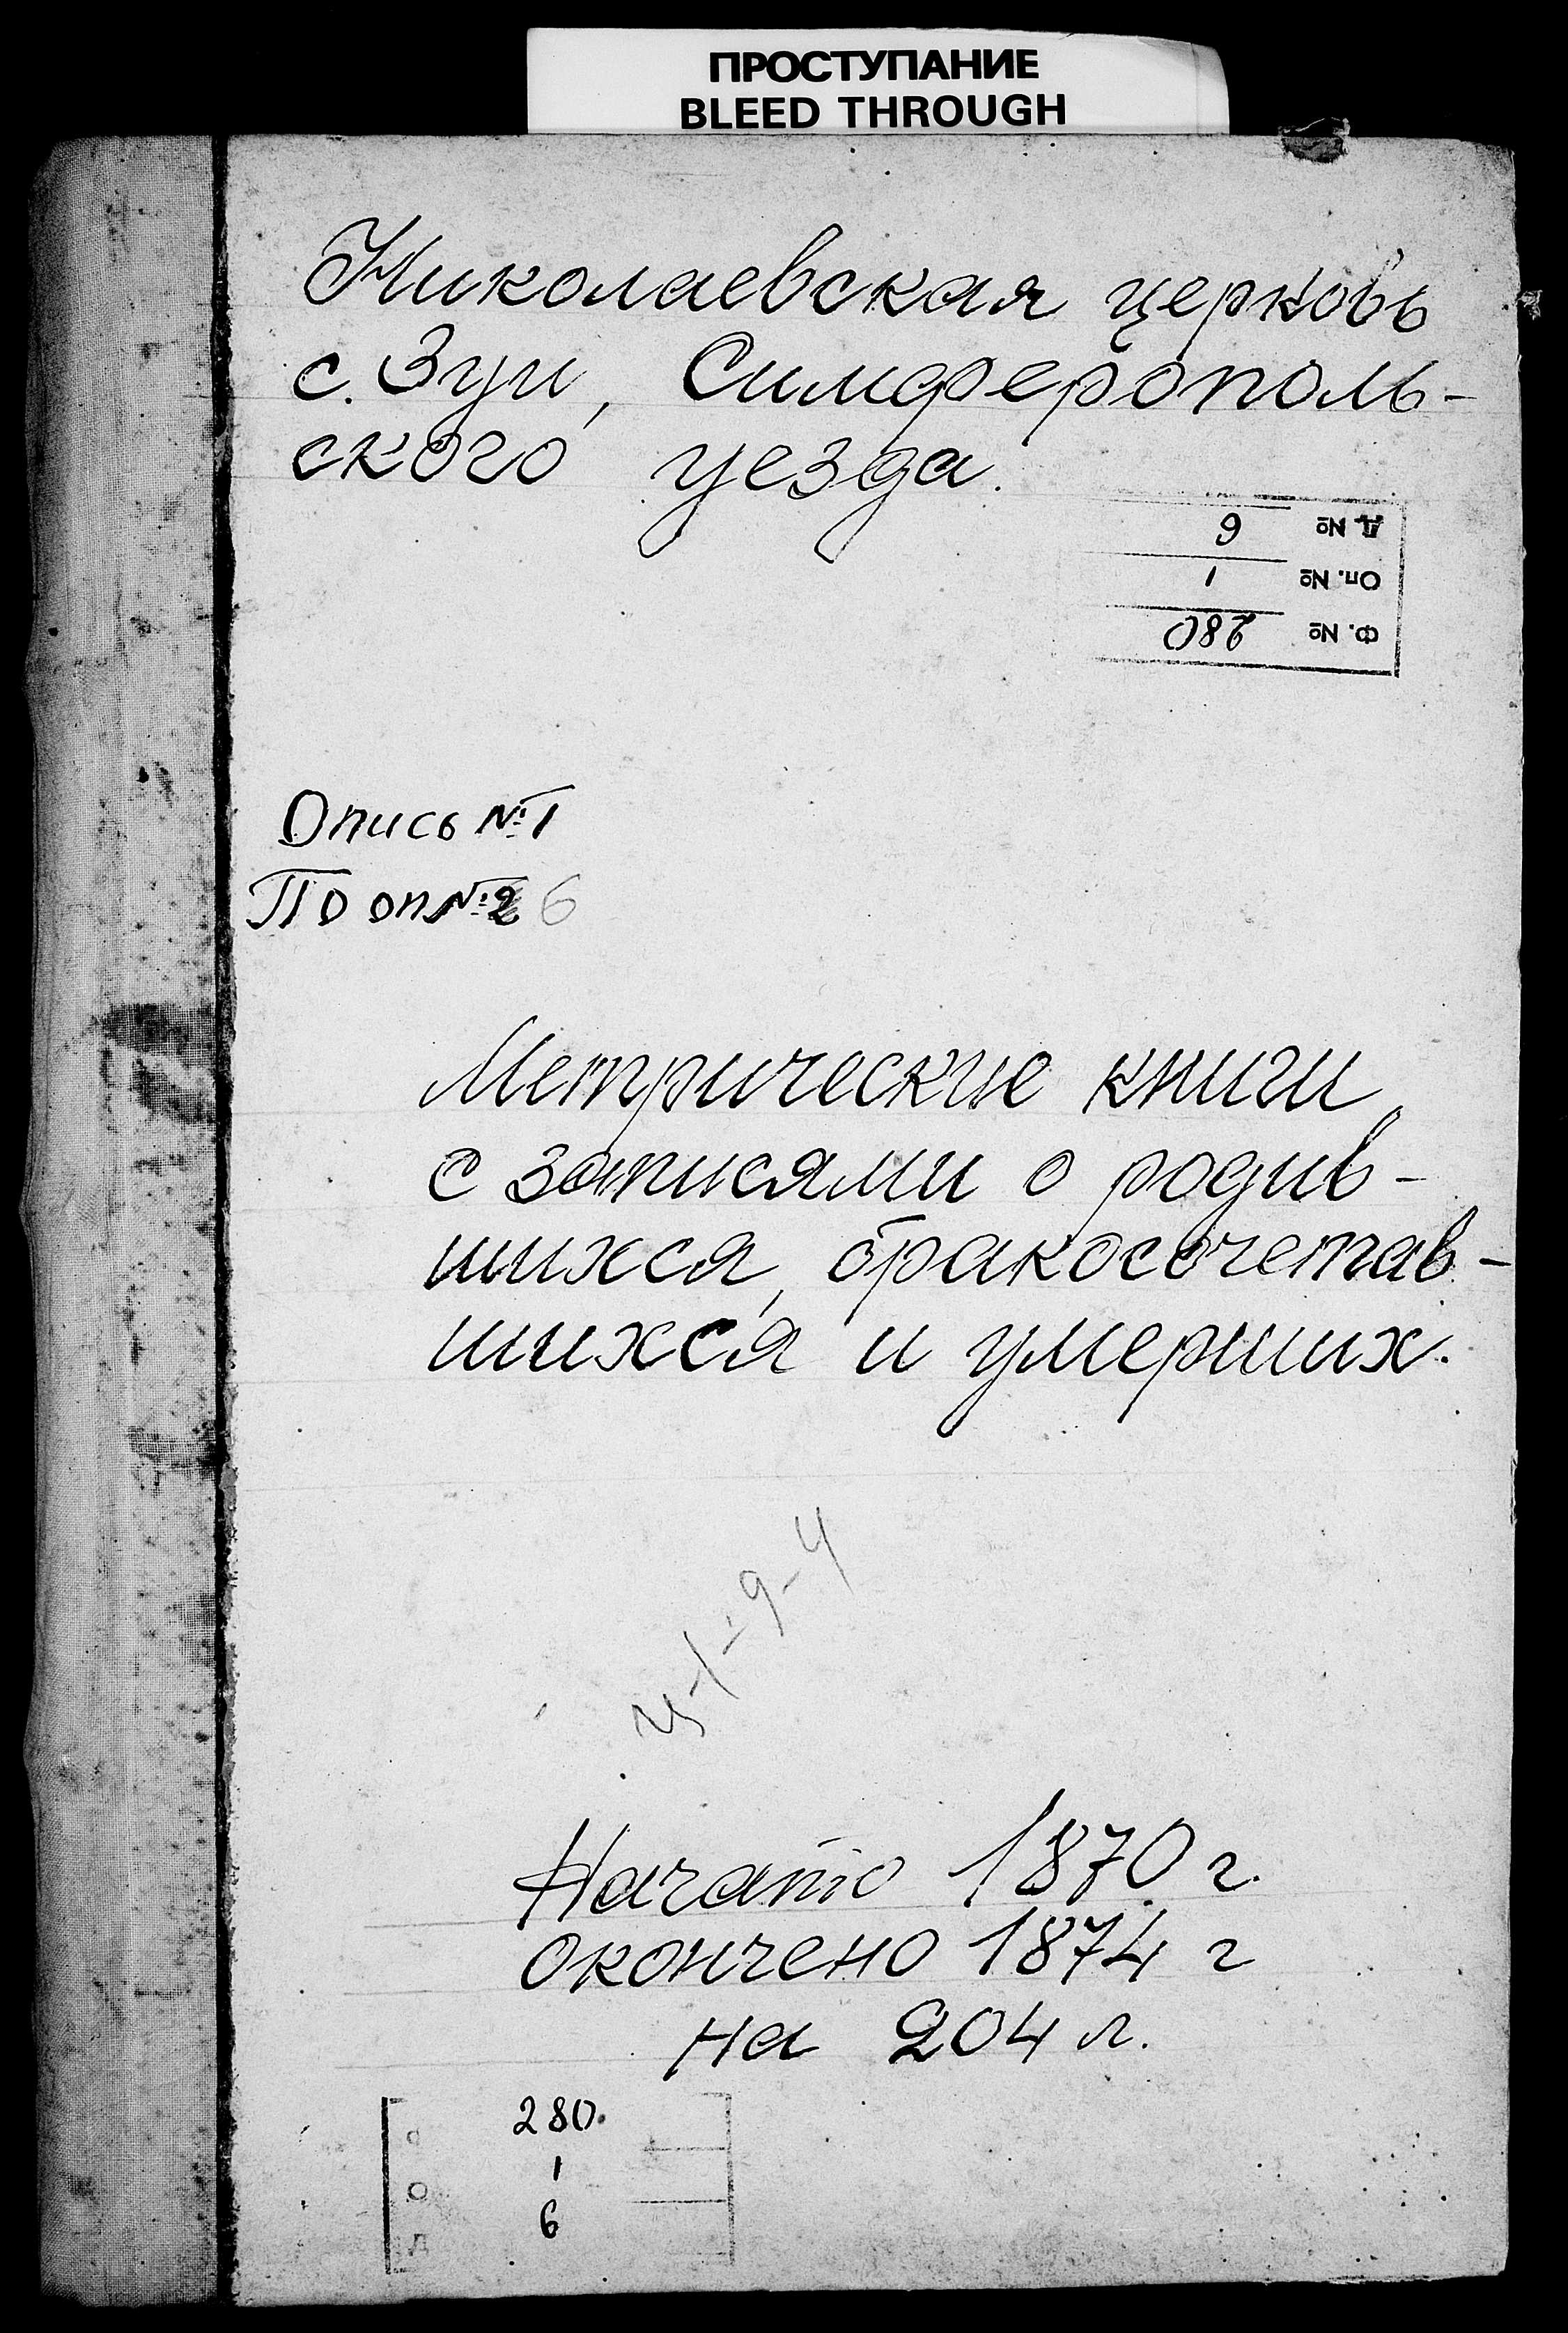 ПРОСТУПАНИЕ
BLEED THROUGH
Николаевская церковь
с. Зуи, Симферополь-
ского уезда.
Д. № 6
Оп. № 1
Ф. № 280
Опись №1
По оп №2 6
Метрические книги
с записями о родив-
шихся, бракосочетав-
шихся и умерших.
Начато 1870 г.
окончено 1874 г
на 204 л.
280.
О 1
Д 6